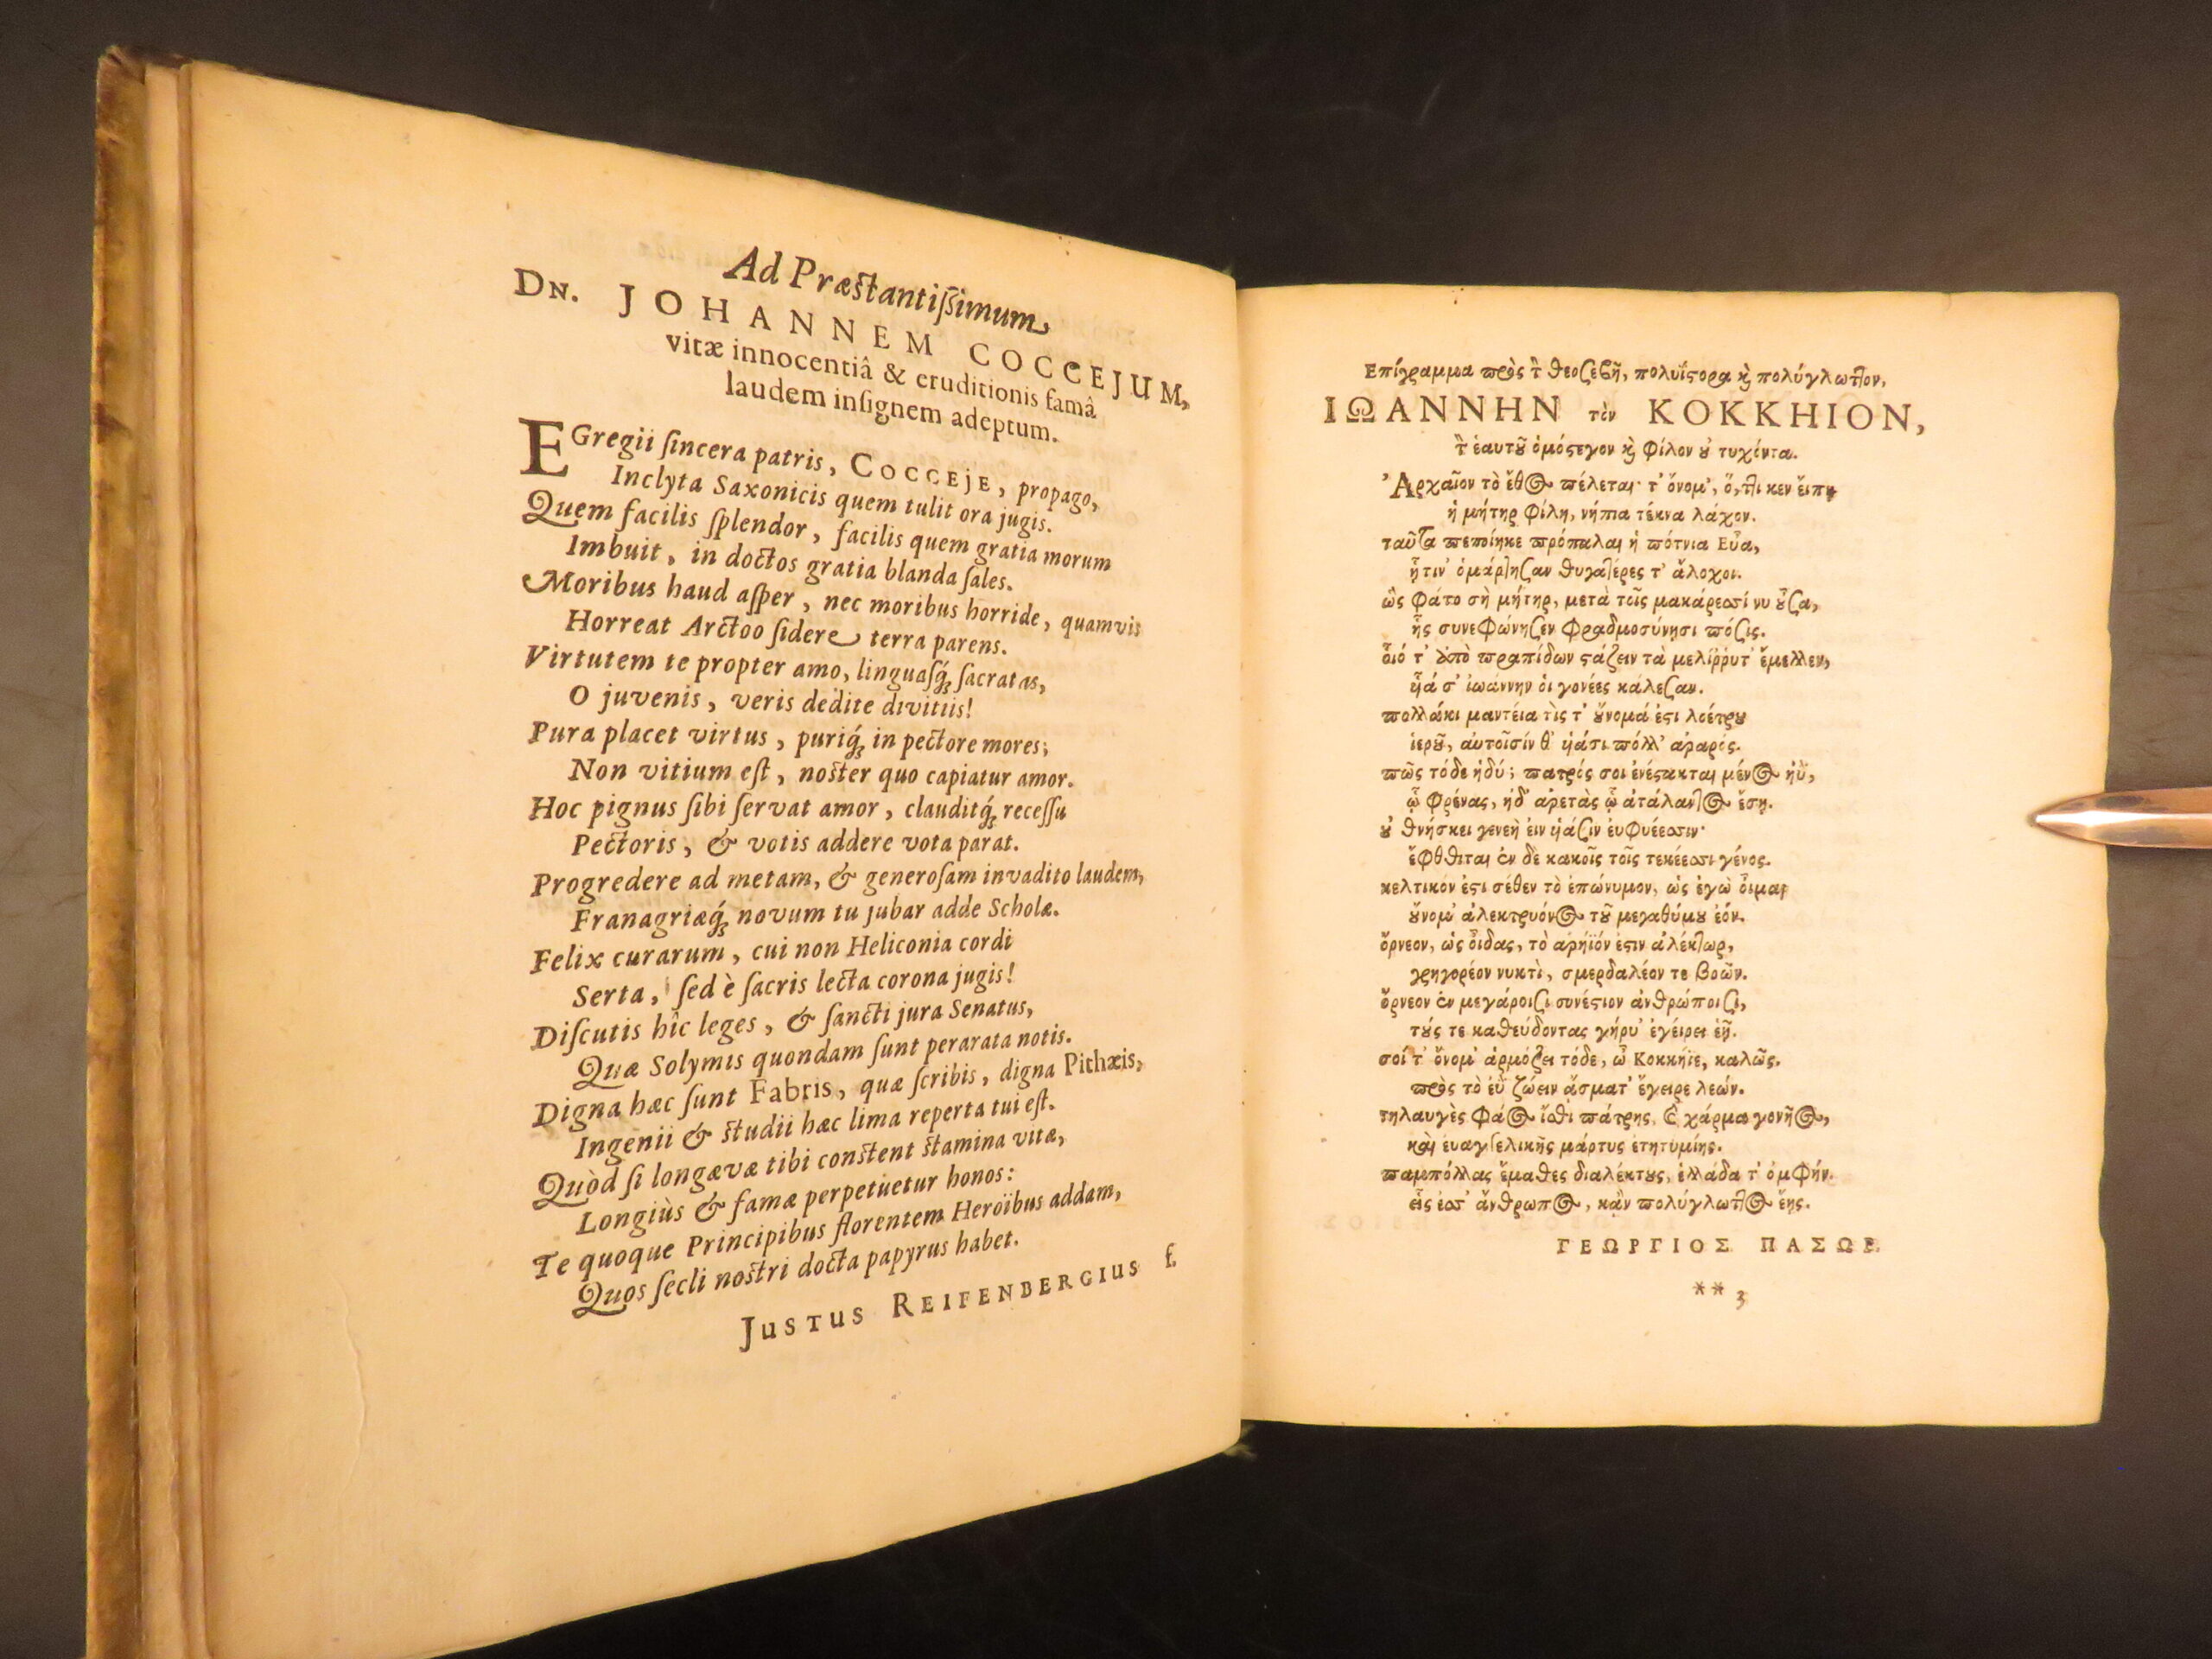 Ad Præstantiſſimum
DN. JOHANNEM COCCEJUM,
vitæ innocentiâ & eruditionis famâ
laudem inſignem adeptum.
EGregii ſincera patris, COCCEJE, propago,
Inclyta Saxonicis quem tulit ora jugis.
Quem facilis ſplendor, facilis quem gratia morum
Imbuit, in doctos gratia blanda ſales.
Moribus haud aſper, nec moribus horride, quamvis
Horreat Arctoo ſidere terra parens.
Virtutem te propter amo, linguaſq́; ſacratas,
O juvenis, veris dedite divitiis!
Pura placet virtus, puriq́; in pectore mores;
Non vitium eſt, noſter quo capiatur amor.
Hoc pignus ſibi ſervat amor, clauditq́; receſſu
Pectoris, & votis addere vota parat.
Progredere ad metam, & generoſam invadito laudem,
Franagriæq́; novum tu jubar adde Scholæ.
Felix curarum, cui non Heliconia cordi
Serta, ſed è ſacris lecta corona jugis!
Diſcutis hîc leges, & ſancti jura Senatus,
Quæ Solymis quondam ſunt perarata notis.
Digna hæc ſunt Fabris, quæ ſcribis, digna Pithæis,
Ingenii & ſtudii hæc lima reperta tui eſt.
Quòd ſi longævæ tibi conſtent ſtamina vitæ,
Longiùs & famæ perpetuetur honos:
Te quoque Principibus florentem Heroïbus addam,
Quos ſecli noſtri docta papyrus habet.
JUSTUS REIFENBERGIUS f.
Επίγραμμα πρὸς τ̀ θεοσεβῆ, πολυΐστορα κὶ πολύγλωττον,
ΙΩΑΝΝΗΝ τὸν ΚΟΚΚΗΙΟΝ,
τ̀ ἑαυτȣ͂ ὁμόστεγον κὶ φίλον ȣ̓ τυχόντα.
Ἀρχαῖον τὸ ἔθος πέλεται τ' ὄνομ', ὅ,τι κεν ἔιπη
ἡ μήτηρ φίλη, νήπια τέκνα λάχον.
ταῦτα πεποίηκε πρόπαλαι ἡ πότνια Εὖα,
ᾗτιν' ὁμάρτησαν θυγατέρες τ' ἄλοχοι.
ὣς φάτο σὴ μήτηρ, μετὰ τοῖς μακάρεσσί νυ ȣ̓͂σα,
ἧς συνεφώνησεν φραδμοσύνησι πόσις.
οἷό τ' ἀπὸ πραπίδων στάζειν τὰ μελίῤῥυτ' ἔμελλεν,
ᾗά σ' ἰωάννην ὁι γονέες κάλεσαν.
πολλάκι μαντέια τὶς τ' ȣ̓́νομά ἐστι λοέτρȣ
ἱερȣ͂, ἀυτοῖσίν θ' ᾑάσι πόλλ' ἀραρός.
πῶς τόδε ἡδύ; πατρός σοι ἐνέστακται μένος ἠῢ,
ᾧ φρένας, ἠδ' ἀρετὰς ᾧ ἀτάλαντος ἔση.
ȣ̓ θνήσκει γενεὴ ἐιν ᾑάσιν ἐυφυέεσσιν·
ἔφθιται ἐν δε κακοῖς τοῖς τεκέεσσι γένος.
κελτικόν ἐστι σέθεν τὸ ἐπώνυμον, ὡς ἐγὼ ὄιμαι
ȣ̓́νομ' ἀλεκτρυόνος τȣ͂ μεγαθύμȣ ἐόν.
ὄρνεον, ὡς ὄιδας, τὸ ἀρήϊόν ἐστιν ἀλέκτωρ,
γρηγορέον νυκτὶ, σμερδαλέον τε βοῶν.
ὄρνεον ἐν μεγάροισι συνέστιον ἀνθρώποισι,
τȣ́ς τε καθεύδοντας γήρυ' ἐγέιρει ἑῇ.
σοί τ' ὄνομ' ἁρμόζει τόδε, ὦ Κοκκήϊε, καλῶς.
πρὸς τὸ ἐῢ ζώειν ἄσματ' ἔγειρε λεών.
τηλαυγὲς φάος ἴσθι πάτρης, ϗ χάρμα γονῆος,
καὶ ἐυαγγελικῆς μάρτυς ἐτητυμίης.
παμπόλλας ἔμαθες διαλέκτȣς, ἑλλάδα τ' ὀμφήν.
εἷς ἐσσ' ἄνθρωπος, κᾂν πολύγλωττος ἔης.
ΓΕΩΡΓΙΟΣ ΠΑΣΩΡ.
** 3